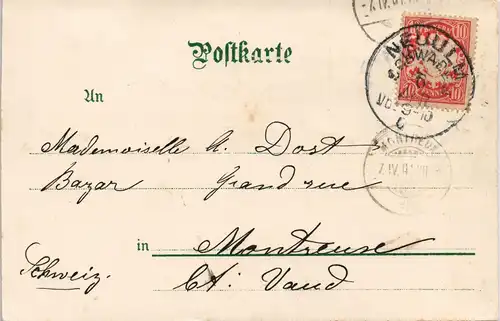 Postkarte
An
Mademoiselle A. Dost
Bazar Grand rue
in Montreux
Schweiz.
Ct: Vaud
10
NEUULM
SCHWABEN
MONTREUX
7.IV.